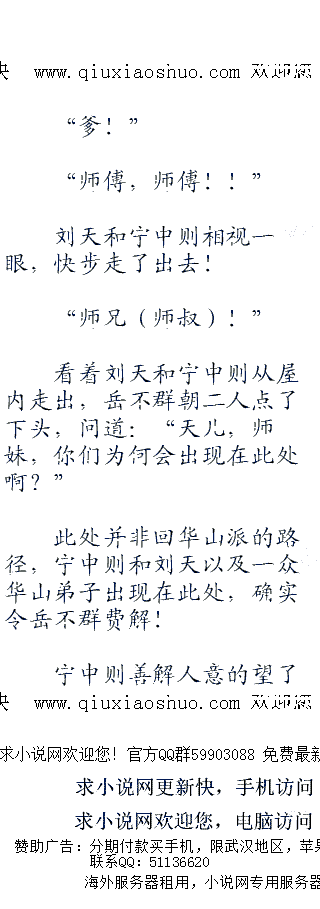 快 www.qiuxiaoshuo.com 欢迎您
“爹！”
“师傅，师傅！！”
刘天和宁中则相视一
眼，快步走了出去！
“师兄（师叔）！”
看着刘天和宁中则从屋
内走出，岳不群朝二人点了
下头，问道：“天儿，师
妹，你们为何会出现在此处
啊？”
此处并非回华山派的路
径，宁中则和刘天以及一众
华山弟子出现在此处，确实
令岳不群费解！
宁中则善解人意的望了
快 www.qiuxiaoshuo.com 欢迎您
求小说网欢迎您！官方QQ群59903088 免费最新
求小说网更新快，手机访问
求小说网欢迎您，电脑访问
赞助广告：分期付款买手机，限武汉地区，苹果
联系QQ：51136620
海外服务器租用，小说网专用服务器